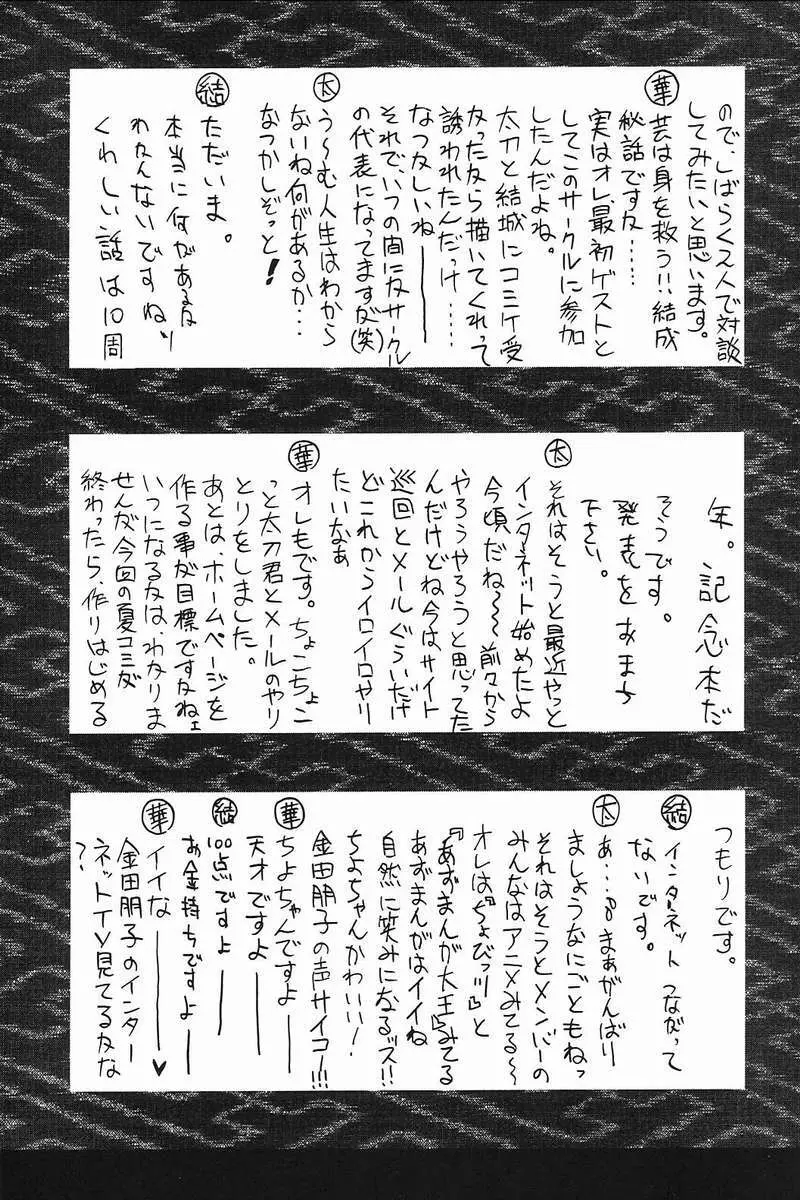 ので、しばらく3人で対談
してみたいと思います。
華 芸は身を救う!!結成
秘話ですな……
実はオレ、最初ゲストと
してこのサークルに参加
したんだよね。
太刀と結城にコミケ受
かったなら描いてくれって
誘われたんだっけ……
なつかしいね――
それで、いつの間にかサークル
の代表になってますが(笑)
太 う〜む人生はわから
ないね何があるか…
なつかしぞっと!
結 ただいま。
本当に何があるか
わかんないですねぃ
くわしい話は10周
年。記念本だ
そうです。
発表をおまち
下さい。
太 それはそうと最近やっと
インターネット始めたよ
今頃だね〜〜前々から
やろうやろうと思ってた
んだけどね今はサイト
巡回とメールぐらいだけ
どこれからイロイロやり
たいなぁ
華 オレもです。ちょこちょこ
っと太刀君とメールのやり
とりをしました。
あとは、ホームページを
作る事が目標ですかねェ
いつになるかは、わかりま
せんが今回の夏コミが
終わったら、作りはじめる
つもりです。
結 インターネットつながって
ないです。
太 あ…まぁがんばり
ましょうなにごともねっ
それはそうとメンバーの
みんなはアニメみてる〜
オレは『ちょびっツ』と
『あずまんが大王』みてる
あずまんがはイイね
自然に笑みになるッス!!
ちよちゃんかわいい!
金田朋子の声サイコー!!!
華 ちよちゃんですよ――
天才ですよ――
結 100点ですよ――
お金持ちですよ――
華 イイな――♥
金田朋子のインター
ネットTV見てるかな
?